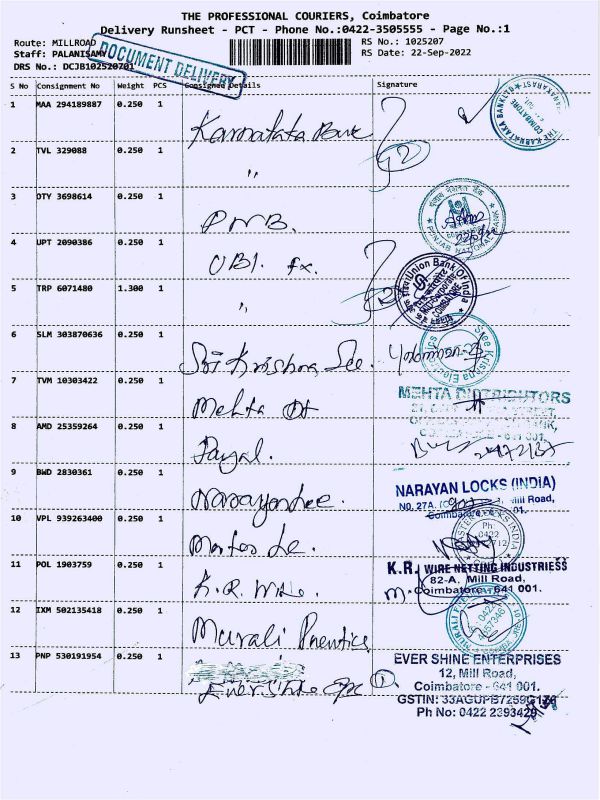 THE PROFESSIONAL COURIERS, Coimbatore
Delivery Runsheet - PCT - Phone No.:0422-3505555 - Page No.:1
Route: MILLROAD
RS No.: 1025207
Staff: PALANISAMY
RS Date: 22-Sep-2022
DRS No.: DCJB102520701
DOCUMENT DELIVERY
S No Consignment No Weight PCS Consigned Details Signature
1 MAA 294189887 0.250 1 Karnataka Bank
THE KARNATAKA BANK LTD COIMBATORE
2 TVL 329088 0.250 1 "
3 OTY 3698614 0.250 1 PNB.
PUNJAB NATIONAL BANK
4 UPT 2090386 0.250 1 UBI.
5 TRP 6071480 1.300 1 "
Union Bank Of India
COIMBATORE
6 SLM 303870636 0.250 1 Sri Krishna
Sree Krishna
7 TVM 10303422 0.250 1 Mehta
MEHTA DISTRIBUTORS
641 001.
8 AMD 25359264 0.250 1 Payal.
9 BWD 2830361 0.250 1
NARAYAN LOCKS (INDIA)
NO. 27A, Mill Road,
Coimbatore - 01.
10 VPL 939263400 0.250 1
Ph: 0422
11 POL 1903759 0.250 1 K.R.
K.R. WIRE NETTING INDUSTRIESS
82-A, Mill Road,
Coimbatore - 641 001.
12 IXM 502135418 0.250 1 Murali
0422
13 PNP 530191954 0.250 1
EVER SHINE ENTERPRISES
12, Mill Road,
Coimbatore - 641 001.
GSTIN:
Ph No: 0422 2393429